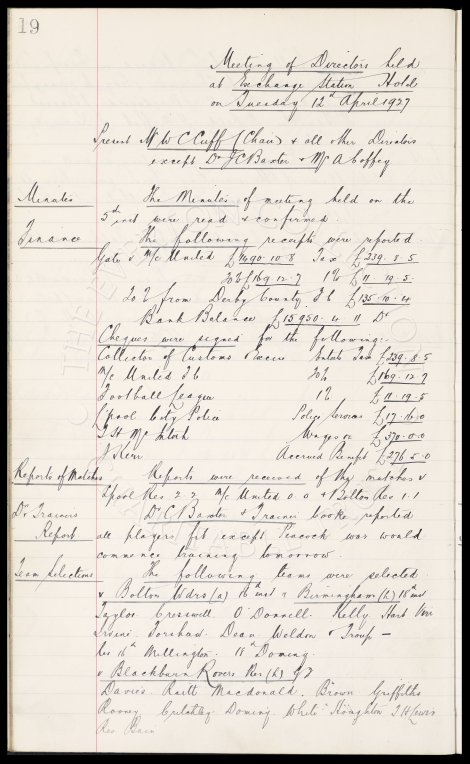 19
Meeting of Directors held
at Exchange Station Hotel
on Tuesday 12th April 1927
Present Mr W C Cuff (Chair) & all other Directors
except Dr J C Baxter & Mr A Coffey
Minutes
The Minutes of meeting held on the
5th inst were read & confirmed.
Finance
The following receipts were reported
Gate v M/c United £1490.10.8 Tax £239.8.5
20% £169.12.7 1% £11.19.5
20% from Derby County Fb £135.10.4
Bank Balance £15950.4.11 Dr
Cheques were signed for the following:-
Collector of Customs & Excise Entets Tax £239.8.5
M/c United Fb 20% £169.12.7
Football League 1% £11.19.5
L'pool City Police Police Services £17.16.0
T H McIntosh Wages &c £370.0.0
J Kerr Accrued Benefit £276.5.0
Reports of Matches
Reports were received of the matches v
L'pool Res 2.2 M/c United 0 0 & Bolton Res 1.1
Dr, Trainers
Report
Dr J C Baxter & Trainer Cooke reported
all players fit except Peacock who would
commence training tomorrow.
Team Selections
The following teams were selected.
v Bolton Wdrs (a) 16th inst & Birmingham (h) 18th inst
Taylor Cresswell O'Donnell. Kelly Hart Virr
Irvine Forshaw. Dean Weldon & Troup -
Res 16th Millington. 18th Doming.
v Blackburn Rovers Res (h)
Davies. Raitt Macdonald. Brown Griffiths
Rooney Critchley Doming. White Houghton T H Lewis
Res Bain